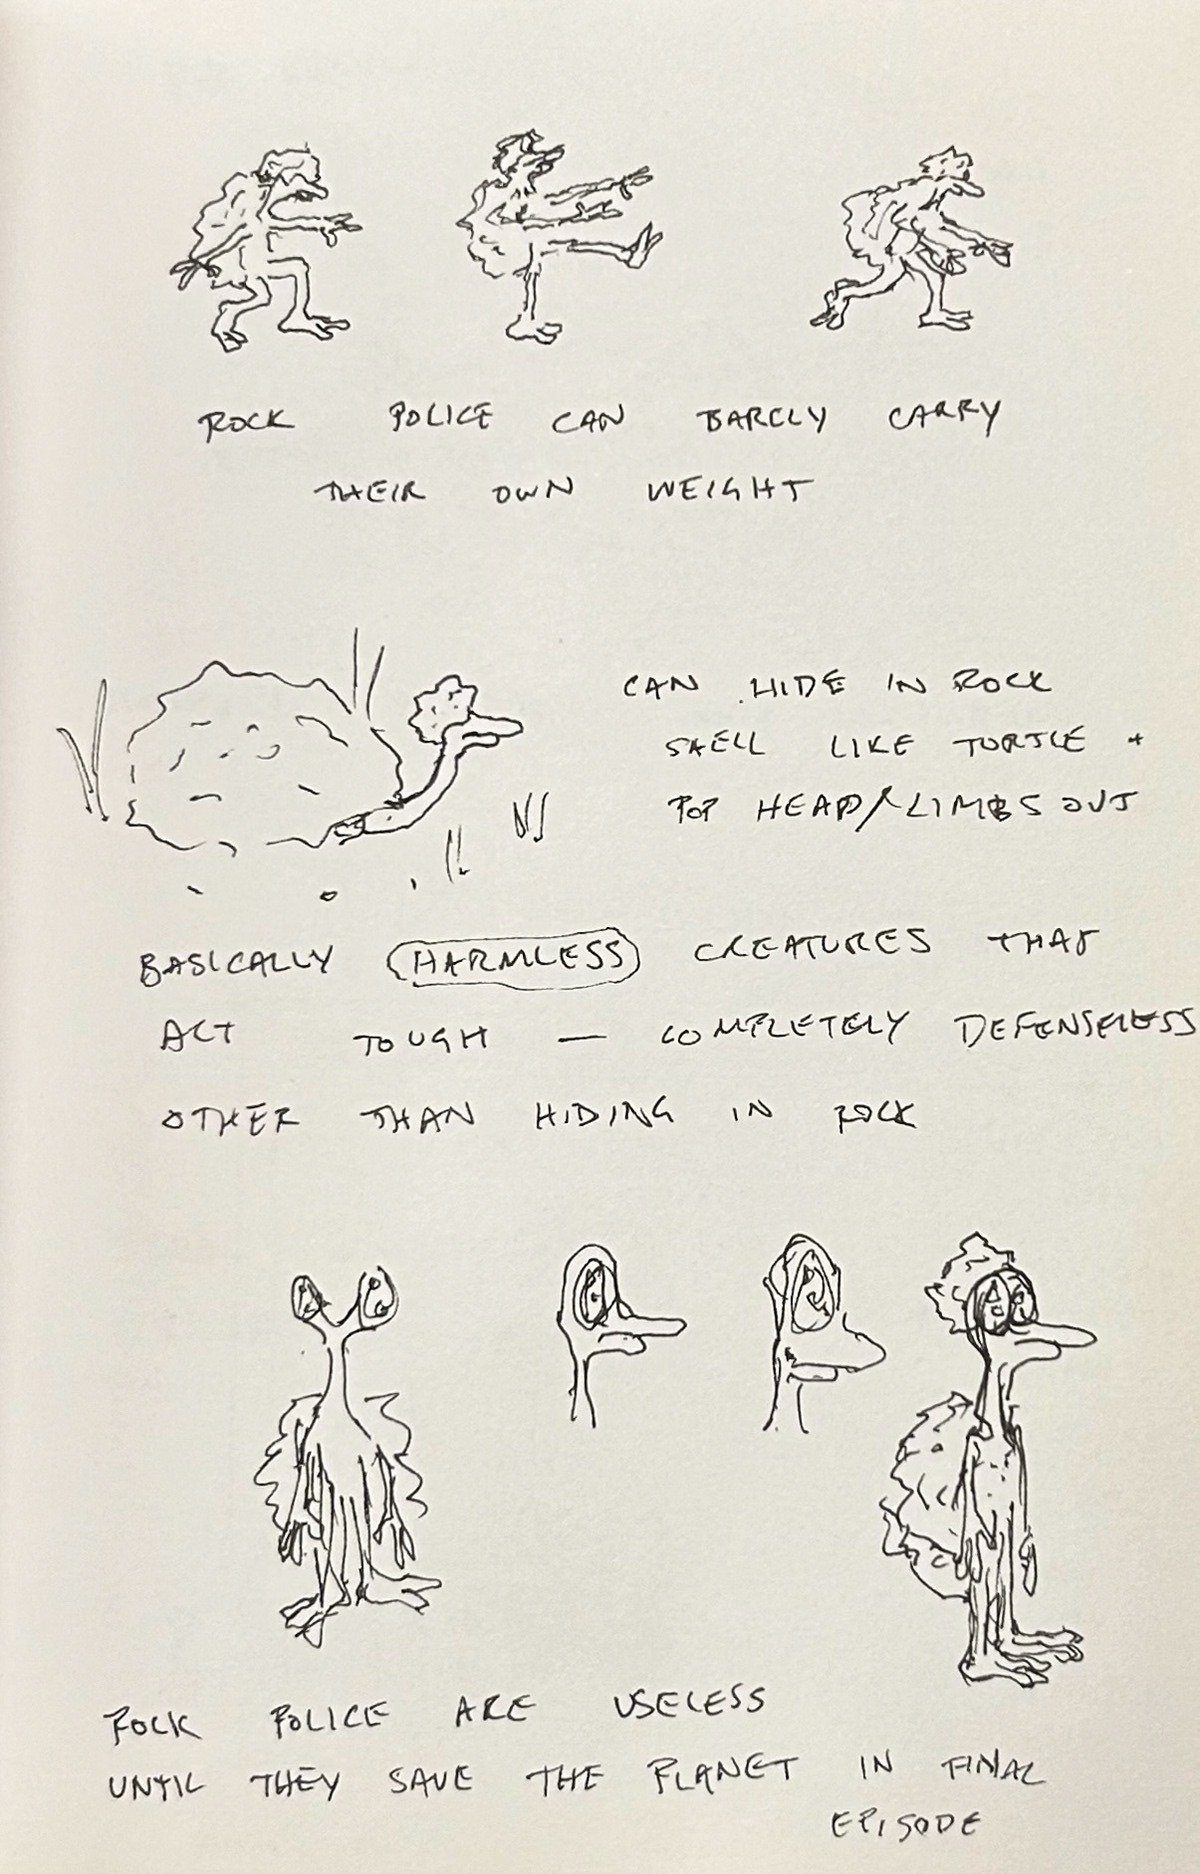 ROCK POLICE CAN BARELY CARRY
THEIR OWN WEIGHT
CAN HIDE IN ROCK
SHELL LIKE TURTLE +
POP HEAD/LIMBS OUT
BASICALLY HARMLESS CREATURES THAT
ACT TOUGH — COMPLETELY DEFENSELESS
OTHER THAN HIDING IN ROCK
ROCK POLICE ARE USELESS
UNTIL THEY SAVE THE PLANET IN FINAL
EPISODE